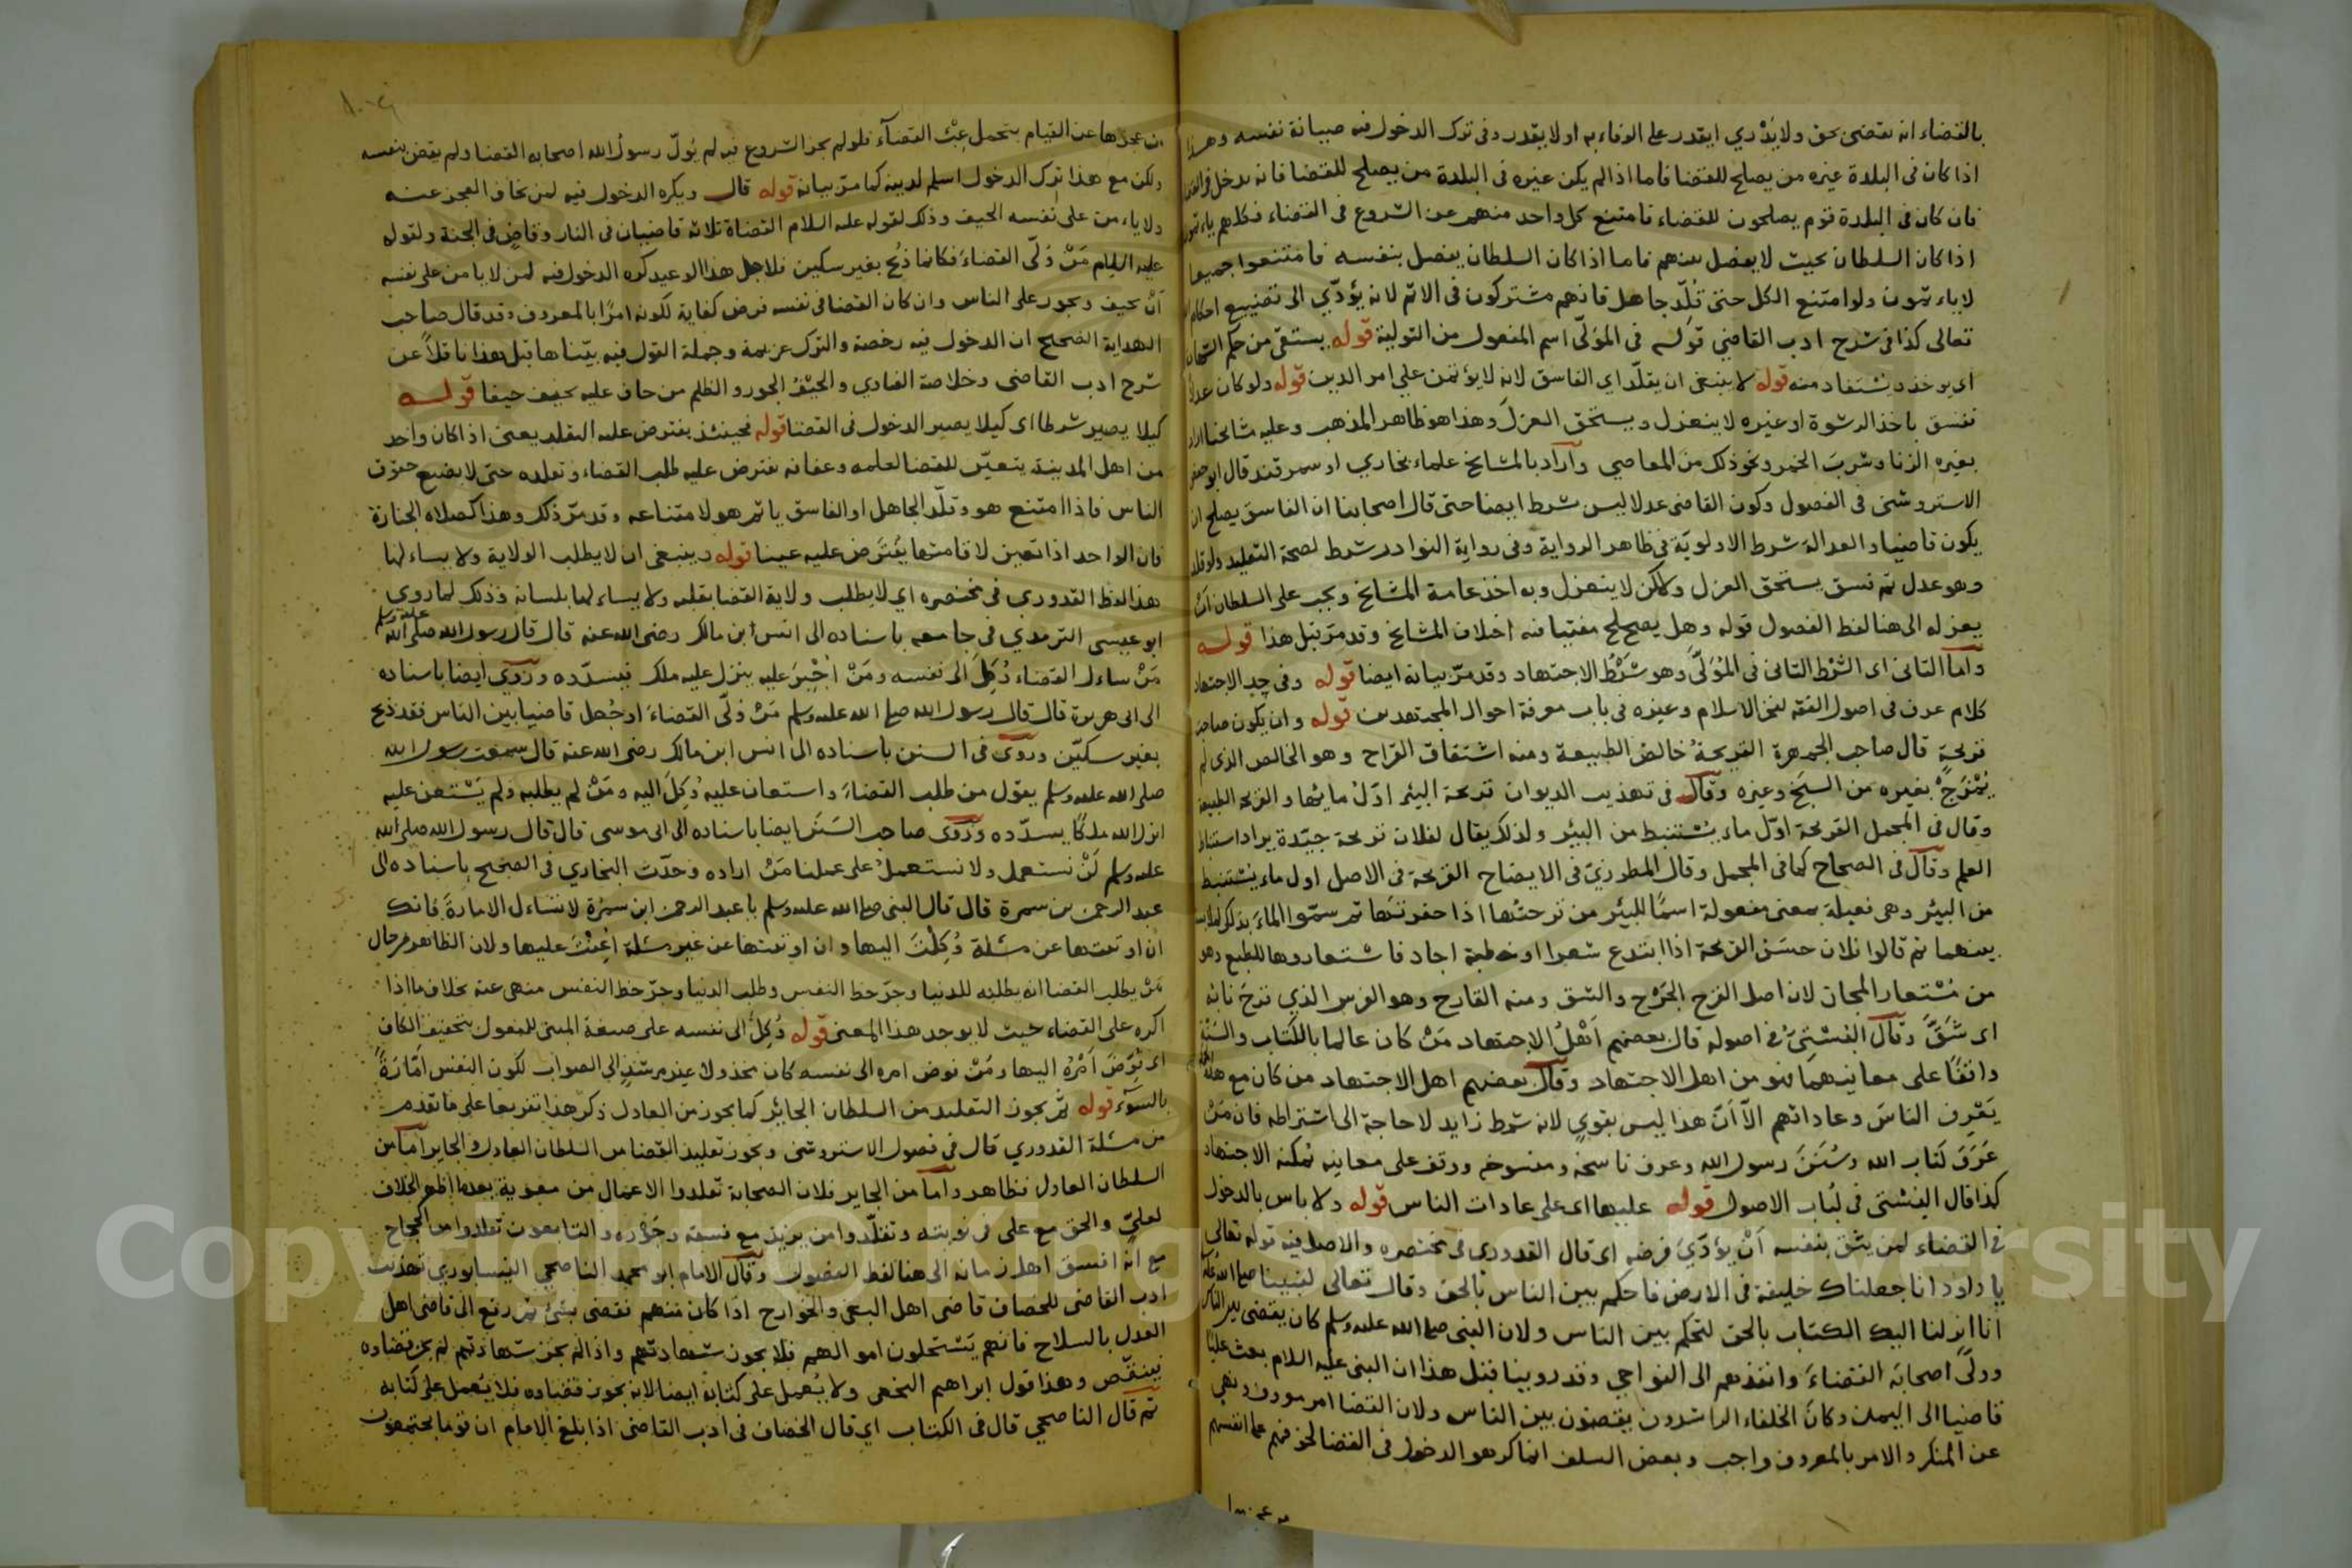 بالقضاء انه يقضى بحق ولا يَدْري ايقدر على الوفاء به او لا يقدر وفى ترك الدخول فيه صيانة نفسه وهذا
اذا كان فى البلدة غيره من يصلح للقضا فاما اذا لم يكن غيره فى البلدة من يصلح للقضا فانه يدخل فى القضا
فان كان فى البلدة قوم يصلحون للقضاء فامتنع كل واحد منهم عن الشروع فى القضاء فكلهم ياءثمون
اذا كان السلطان بحيث لا يفصل بينهم فاما اذا كان السلطان يفصل بنفسه فامتنعوا جميعا
لا ياءثمون ولو امتنع الكل حتى قُلّد جاهل فانهم مشتركون فى الاثم لانه يؤدّي الى تضييع احكام الله
تعالى كذا فى شرح ادب القاضي قوله فى المولّى اسم المفعول من التولية قوله يستقى من حكم الشهادة
اى يوخذ ويستفاد منه قوله لا ينبغى ان يقلّد اي الفاسق لانه لا يؤتمن على امر الدين قوله ولو كان عدلا
ففسق باخذ الرشوة او غيره لا ينعزل ويستحق العزل وهذا هو ظاهر المذهب وعليه مشايخنا اراد
بغيره الزنا وشرب الخمر ونحو ذلك من المعاصي وأراد بالمشايخ علماء بخاري او سمرقند قال ابو جعفر
الاستروشنى فى الفصول وكون القاضى عدلا ليس شرط ايضا حتى قال اصحابنا ان الفاسق يصلح ان
يكون قاضيا والعدالة شرط الاولويّة فى ظاهر الرواية وفى رواية النوادر شرط لصحة التقليد ولو قلد
وهو عدل ثم فسق يستحق العزل ولاكن لا ينعزل وبه اخذ عامة المشايخ ويجب على السلطان انْ
يعزله الى هنا لفظ الفصول قوله وهل يصح مفتيا فيه اختلاف المشايخ وقد مرّ قبل هذا قوله
واما الثانى اى الشرط الثانى فى المُوَلَّى وهو شَرْطُ الاجتهاد وقد مرّ بيانه ايضا قوله وفى حد الاجتهاد
كلام عرف فى اصول الفقه لفخر الاسلام وغيره فى باب معرفة احوال المجتهدين قوله وان يكون صاحب
قريحةٍ قال صاحب الجمهرة القريحةُ خالص الطبيعة ومنه اشتقاق القراح وهو الخالص الذى لم
يُمْتَزَجْ بغيره من السبخ وغيره وقال فى تهذيب الديوان قريحة البئر اوّلُ مائها والقريحة الطبيعة
وقال فى المجمل القريحة اوّل ماء يُسْتنبط من البئر ولذلك يقال لفلان قريحة جيّدة يراد استنباط
العلم وقال فى الصحاح كما فى المجمل وقال المطرزيّ فى الايضاح القريحة فى الاصل اول ماء يُسْتنبط
من البئر وهى فعيلة بمعنى مفعولة اسمًا للبئر من قرحتُها اذا حفرتَها ثم سمّوا الماءَ بذلك
بينهما ثم قالوا فلان حسَن القريحة اذا ابتدع شعرا او خطبة اجاد فاستعاروها للطبع وهو
من مُسْتعار المجاز لان اصل القرح الجَرْح والشق ومنه القارح وهو الفرس الذي قرحَ نابُه
اى شَقَّ وقال البَشتِيُّ فى اصوله قال بعضهم اَهْلُ الاجتهاد مَنْ كان عالما بالكتاب والسنّة
واقفًا على معانيهما فهو من اهل الاجتهاد وقال بعضهم اهل الاجتهاد من كان مع هذا
يَعْرِف الناسَ وعاداتهم الّا اَنّ هذا ليس بقويٍ لانه شرط زايد لا حاجة الى اشتراطه فان مَنْ
عَرَفَ كتاب الله وسُنَنَ رسول الله وعرف ناسخه ومنسوخه ووقف على معانيه يُمكنه الاجتهاد
كذا قال البشتى فى لُباب الاصول قوله عليها اى على عادات الناس قوله ولا باس بالدخول
فى القضاء لمن يثق بنفسه اَنْ يؤدّيَ فرضه اى قال القدورى فى مختصره والاصل فيه قوله تعالى
يا داود انا جعلناك خليفة فى الارض فاحكم بين الناس بالحق وقال تعالى لنبينا صلى الله عليه
انا انزلنا اليك الكتاب بالحق لتحكم بين الناس ولان النبى صلى الله عليه وسلم كان يقضى بين الناس
وولّى اصحابَه القضاءَ وانفذهم الى النواحي وقد روينا قبل هذا ان النبى عليه السلام بعث عليًا
قاضيا الى اليمن وكان الخلفاء الراشدون يقضون بين الناس ولان القضا امر معروف ونهي
عن المنكر والامر بالمعروف واجب وبعض السلف انما كرهو الدخول فى القضا لخوفهم على انفسهم
عن عجزها عن القيام بتحمل عِبْء القضاء فلو لم يجز الشروع فيه لم يُولّ رسولُ الله اصحابه القضا ولم يقض بنفسه
ولكن مع هذا ترك الدخول اسلم لدينه كما مرّ بيانه قوله قال ويكره الدخول فيه لمن يخاف العجز عنه
ولا ياءمن على نفسه الحيف وذلك لقوله عليه السلام القضاة ثلاثه قاضيان فى النار وقاضٍ فى الجنة ولقوله
عليه السلام مَنْ وُلّى القضاءَ فكانما ذُبح بغير سكين فلاجل هذا الوعيد كره الدخول فيه لمن لا يامن على نفسه
اَنْ يحيف ويجور على الناس وان كان القضا فى نفسه فرض كفاية لكونه امرًا بالمعروف وقد قال صاحب
الهداية الصحيح ان الدخول فيه رخصة والترك عزيمة وجملة القول فيه بيّناها قبل هذا ناقلًا عن
شرح ادب القاضى وخلاصة الفتاوي والحَيْفُ الجور والظلم من حاف عليه يحيف حيفا قوله
كيلا يصير شرطا اى كيلا يصير الدخول فى القضا قوله فحينئذ يفترض عليه التقلد يعنى اذا كان واحد
من اهل المدينة يتعيّن للقضا لعلمه وعفافه يفترض عليه طلب القضاء وتقلده حتى لا يضيع حقوق
الناس فاذا امتنع هو وقلّد الجاهل او الفاسق ياثم هو لامتناعه وقد مرّ ذكره وهذا كصلاة الجنازة
فان الواحد اذا تعين لاقامتها يُفتَرض عليه عينا قوله وينبغى ان لا يطلب الولاية ولا يساءلها
هذا لفظ القدورى فى مختصره اي لا يطلب ولاية القضا بقلبه ولا يساءلها بلسانه وذلك لما روى
ابو عيسى الترمدي فى جامعه باسناده الى انس ابن مالك رضى الله عنه قال قال رسول الله صلى الله عليه وسلم
مَنْ ساءل القضاء وُكِلَ الى نفسه ومَنْ اُجْبِرَ عليه ينزل عليه ملك فيسدّده وروى ايضا باسناده
الى ابى هريرة قال قال رسول الله صلى الله عليه وسلم مَنْ وُلّى القضاءَ او جُعل قاضيا بين الناس فقد ذبح
بغير سكّين وروى فى السنن باسناده الى انس ابن مالك رضى الله عنه قال سمعت رسول الله
صلى الله عليه وسلم يقول من طلب القضاءَ واستعان عليه وُكِلَ اليه ومَنْ لم يطلبه ولم يَسْتعن عليه
انزل الله ملكًا يسدّده وروى صاحب السنَن ايضا باسناده الى ابى موسى قال قال رسول الله صلى الله
عليه وسلم لَنْ نستعمل ولا نستعملُ على عملنا مَنْ اراده وحدّث البخاري فى الصحيح باسناده الى
عبد الرحمن بن سمرة قال قال النبى صلى الله عليه وسلم يا عبد الرحمن ابن سَمُرة لا تساءل الامارةَ فانك
ان اوتيتها عن مسئلة وُكِلْتَ اليها وان اوتيتها عن غير مسئلة اُعِنْتَ عليها ولان الظاهر من حال
مَنْ يطلب القضا انه يطلبه للدنيا وجرّ حظ النفس وطلب الدنيا وجرّ حظ النفس منهى عنه بخلاف ما اذا
اكره على القضاء حيث لا يوجد هذا المعنى قوله وُكِلَ الى نفسه على صيغة المبنى للمفعول بتخفيف الكاف
اى فُوّضَ اَمْرُه اليها ومَنْ فوض امره الى نفسه كان مخذولا غير مرشَدٍ الى الصواب لكون النفس اَمّارةً
بالسوء قوله ثم يجوز التقليد من السلطان الجاير كما يجوز من العادل ذكر هذا تفريعا على ما تقدم
من مسئلة القدوري قال فى فصول الاستروشنى ويجوز تقليد القضا من السلطان العادل والجاير اما من
السلطان العادل فظاهر واما من الجاير فلان الصحابة تقلدوا الاعمال من معوية بعد اظهر الخلاف
لعلىّ والحق مع على فى نوبته وتقلّدوا من يزيد مع فسقه وجَوْره والتابعون تقلدوا من الحجاج
مع انّه افسق اهل زمانه الى هنا لفظ الفصول وقال الامام ابو محمد الناصحي النيسابوري فى تهذيب
ادب القاضى للخصاف قاضى اهل البغى والخوارج اذا كان منهم فقضى بشئ ثم رفع الى قاضى اهل
العدل بالسلاح فانهم يَسْتحلون اموالهم فلا يجوز شهادتهم واذا لم يجز شهادتهم لم يجز قضاءه
فينقض وهذا قول ابراهيم النخعى ولا يُعمل على كتابه ايضا لانه يجوز قضاءه فلا يُعمل على كتابه
ثم قال الناصحي قال فى الكتاب اي قال الخصاف فى ادب القاضى اذا بلغ الامام ان قوما يجتمعون
Copyright © King Saud University